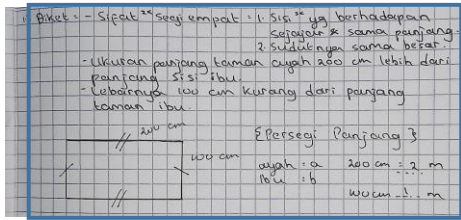 Diket : - Sifat² segi empat : 1. Sisi² yg berhadapan
sejajar & sama panjang.
2. Sudutnya sama besar.
- Ukuran panjang taman ayah 200 cm lebih dari
panjang sisi ibu.
- Lebarnya 100 cm kurang dari panjang
taman ibu.
200 cm
100 cm
{Persegi Panjang}
ayah : a
Ibu : b
200 cm = 2 m
100 cm = 1 m